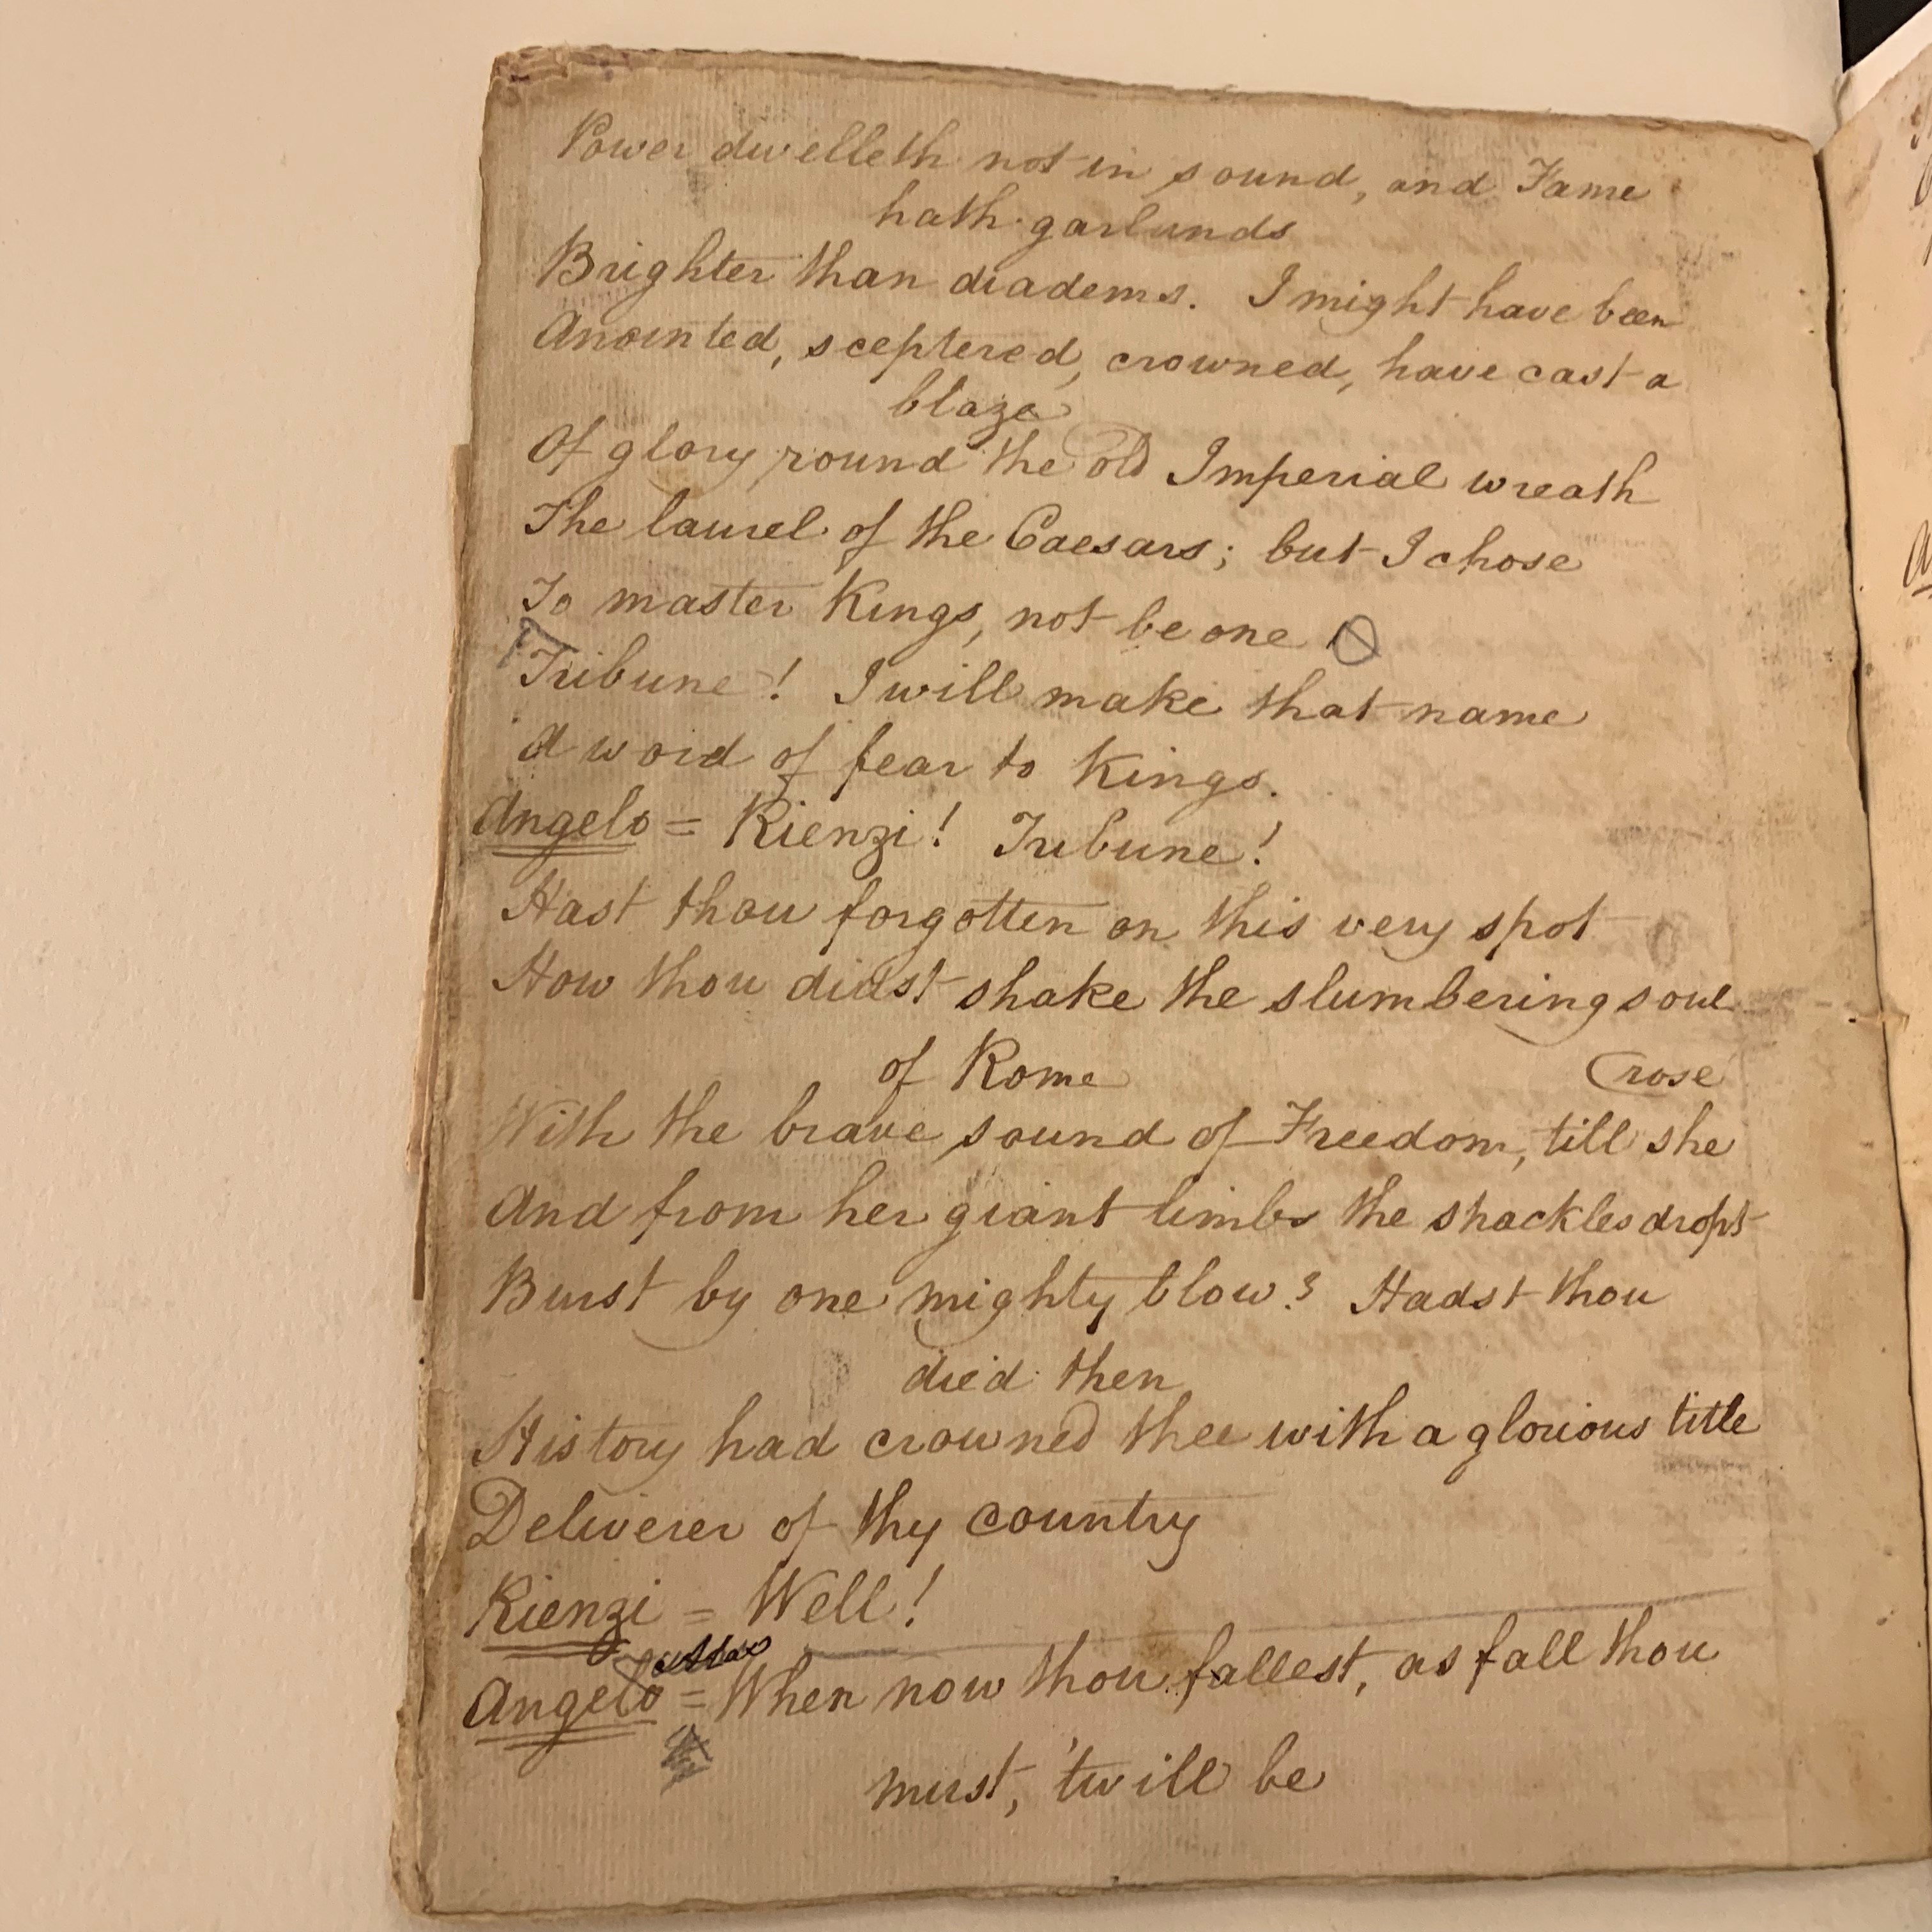 Power dwelleth not in sound, and Fame
hath garlands
Brighter than diadems. I might have been
Anointed, sceptered, crowned, have cast a
blaze
Of glory round the old Imperial wreath
The laurel of the Caesars; but I chose
To master Kings, not be one
Tribune! I will make that name
A word of fear to Kings.
Angelo = Rienzi! Tribune!
Hast thou forgotten on this very spot
How thou didst shake the slumbering soul
of Rome
(rose
With the brave sound of Freedom, till she
And from her giant limbs the shackles dropt
Burst by one mighty blow? Hadst thou
died then
History had crowned thee with a glorious title
Deliverer of thy country
Rienzi = Well!
Angelo = When now thou fallest, as fall thou
must, 'twill be